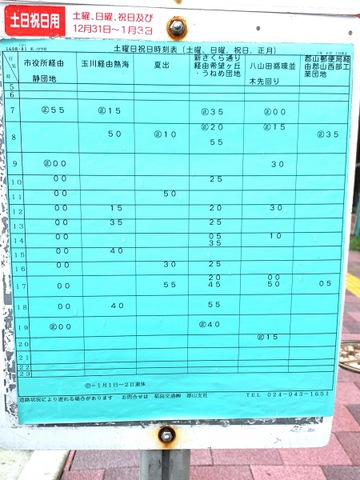 土日祝日用
土曜、日曜、祝日及び
12月31日～1月3日
土曜日祝日時刻表（土曜、日曜、祝日、正月）
市役所経由
静団地
玉川経由熱海
夏出
新さくら通り
経由希望ヶ丘
・うねめ団地
八山田循環並
木先回り
郡山郵便局経
由郡山西部工
業団地
5
6
7 ㊣55 ㊣15 ㊣35 ㊣00
8 50 ㊣10 ㊣20 ㊣15 ㊣35
55
9 ㊣00 30
10 00 25
11 00 50
12 00 15 20 30
13 00 35 25
14 00 05 10
35
15 00 40
16 30 25
17 00 55 20 00 05
45 50
18 00 40 55
19 ㊣00 ㊣40
20 ㊣15
21
22
23
㊣＝1月1日～2日運休
道路状況により遅れる場合があります お問合せは 福島交通㈱ 郡山支社 TEL 024-943-1651